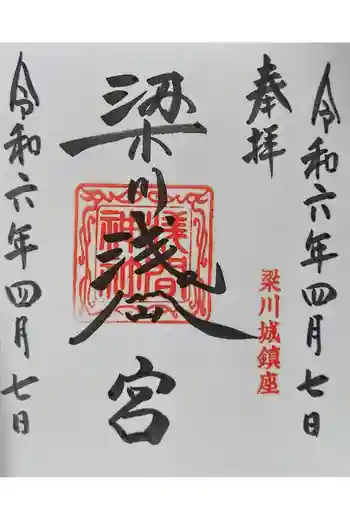 令和六年四月七日
奉拝
梁川城鎮座
梁川淺間宮
淺間
神社
令和六年四月七日